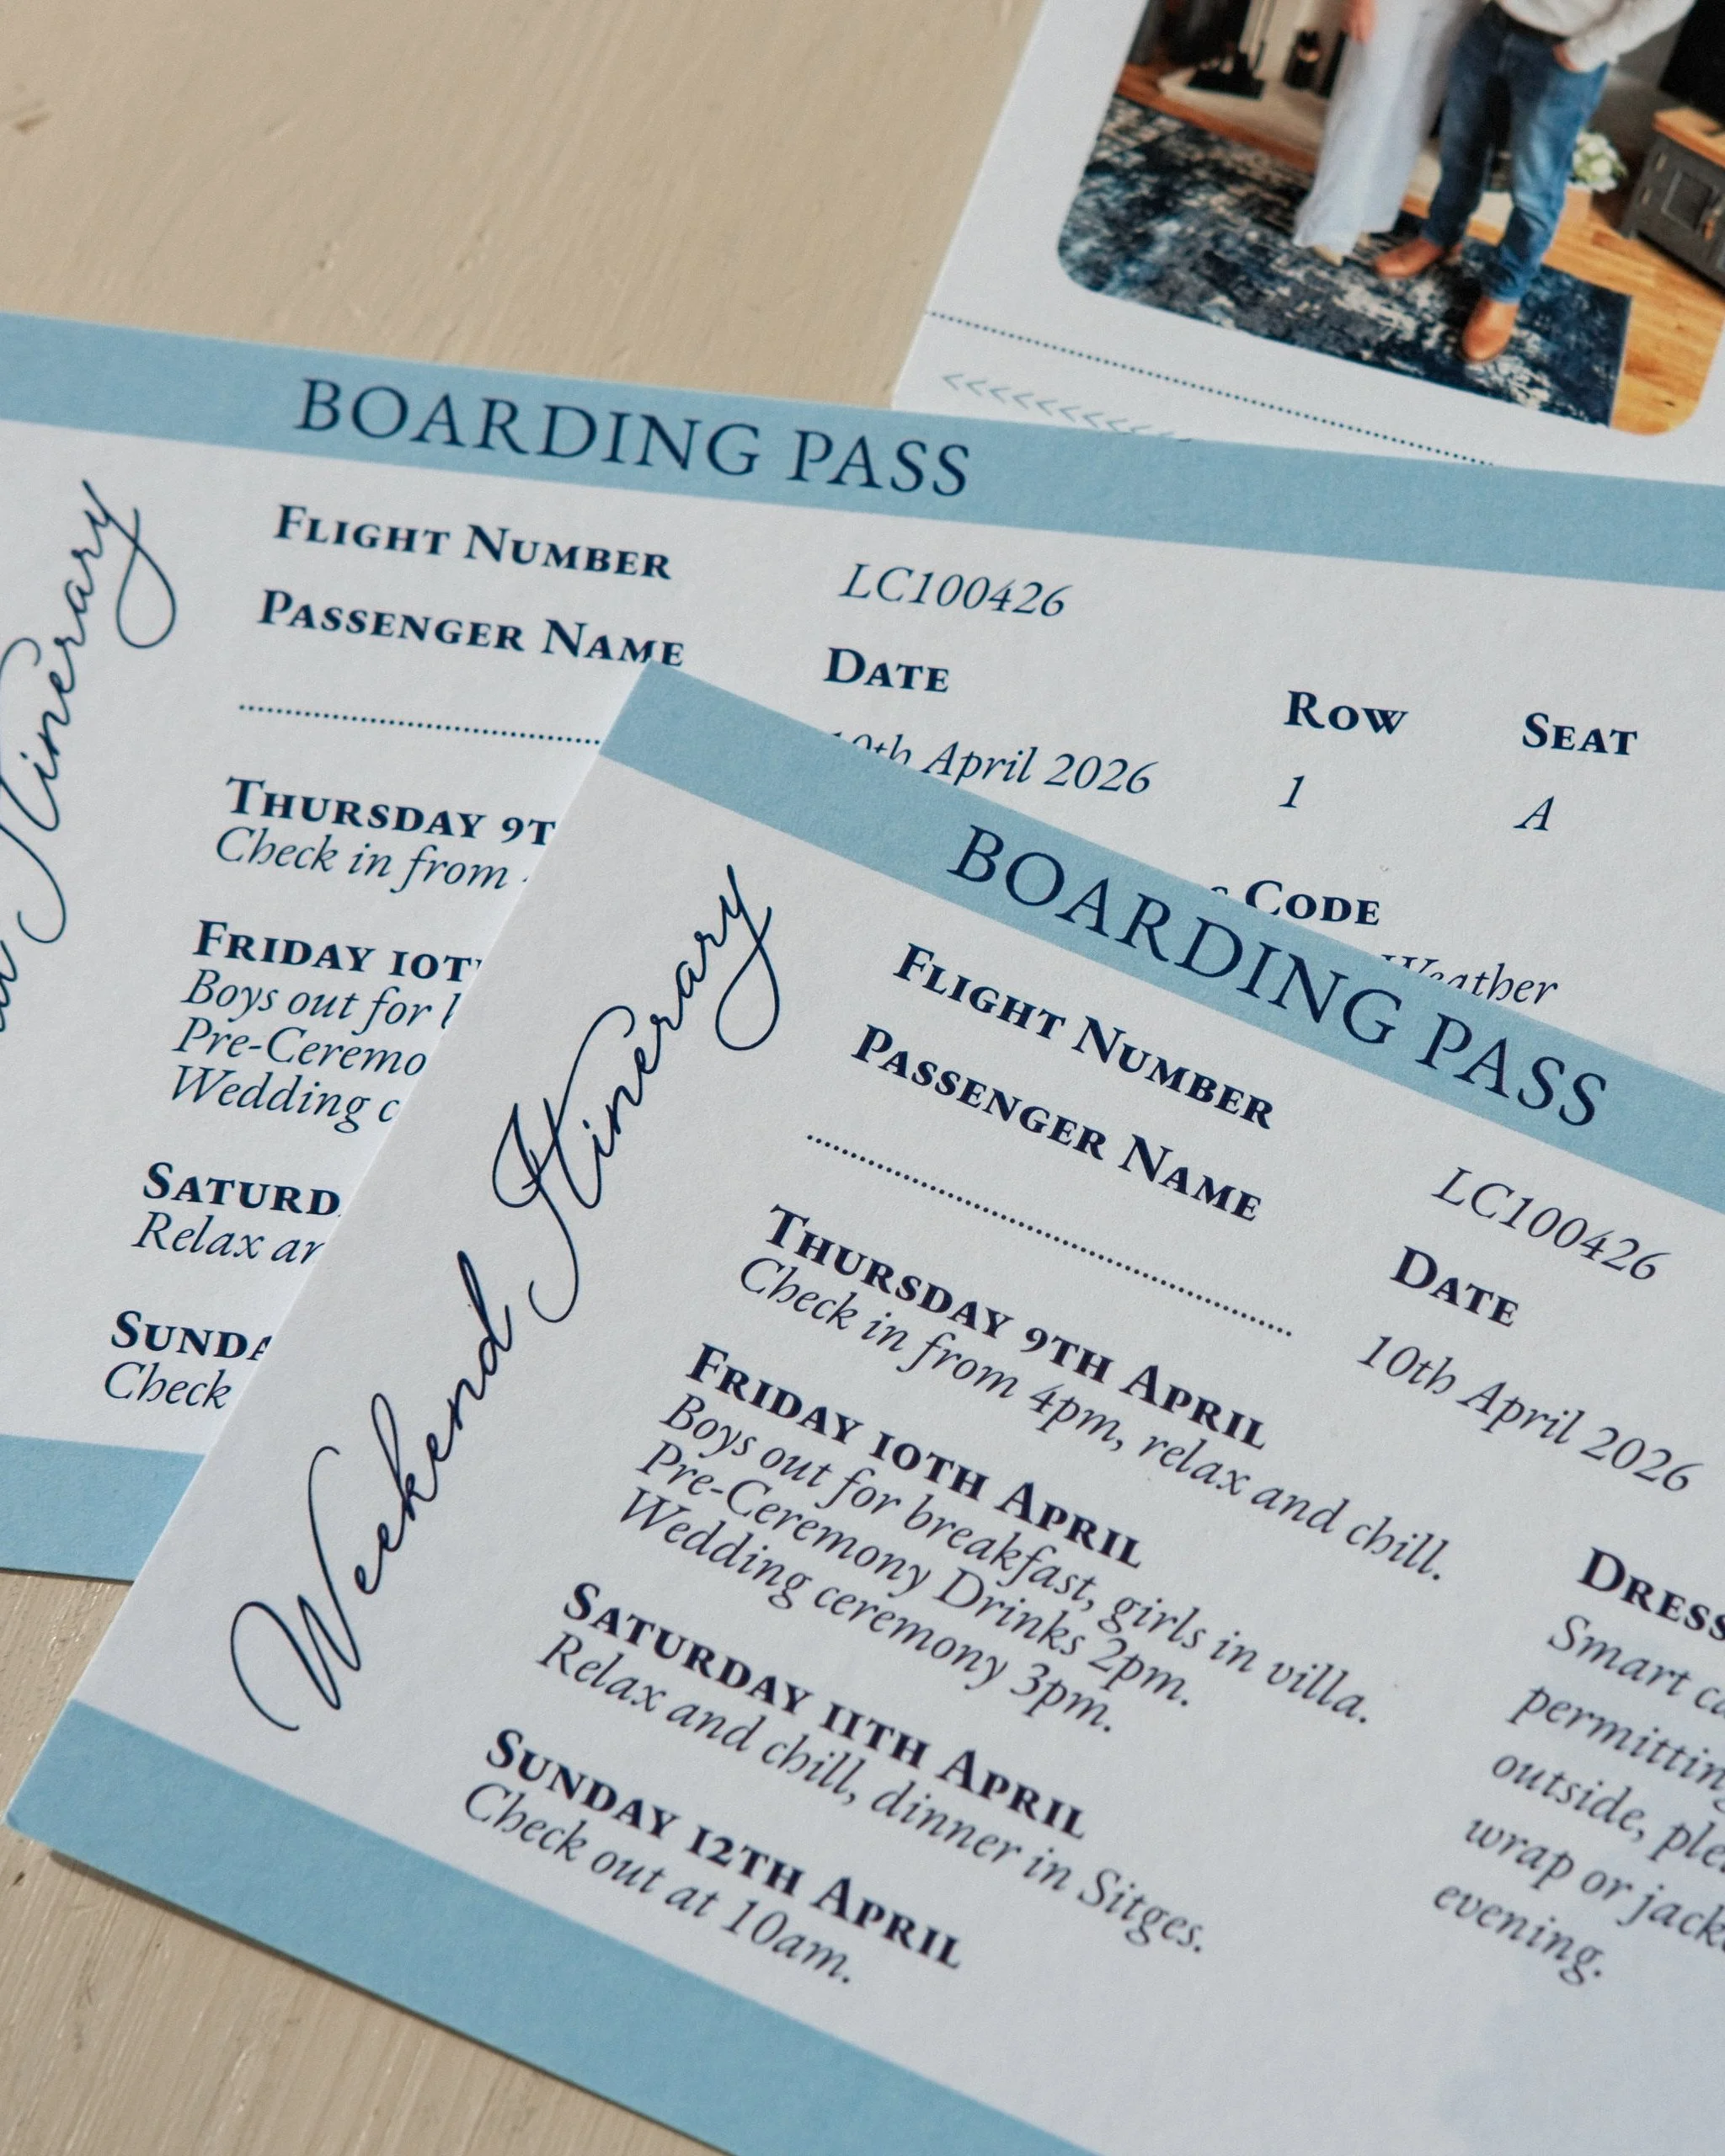 BOARDING PASS
Itinerary
FLIGHT NUMBER
LC100426
PASSENGER NAME
DATE
April 2026
ROW
1
SEAT
A
CODE
Weather
THURSDAY
Check in from
FRIDAY
Boys out for
Wedding
Relax
Check
BOARDING PASS
Weekend Itinerary
FLIGHT NUMBER
LC100426
PASSENGER NAME
DATE
10th April 2026
THURSDAY 9TH APRIL
Check in from 4pm, relax and chill.
FRIDAY 10TH APRIL
Boys out for breakfast, girls in villa.
Pre-Ceremony Drinks 2pm.
Wedding ceremony 3pm.
SATURDAY 11TH APRIL
Relax and chill, dinner in Sitges.
SUNDAY 12TH APRIL
Check out at 10am.
DRESS
Smart
permitting
outside,
wrap or
evening.